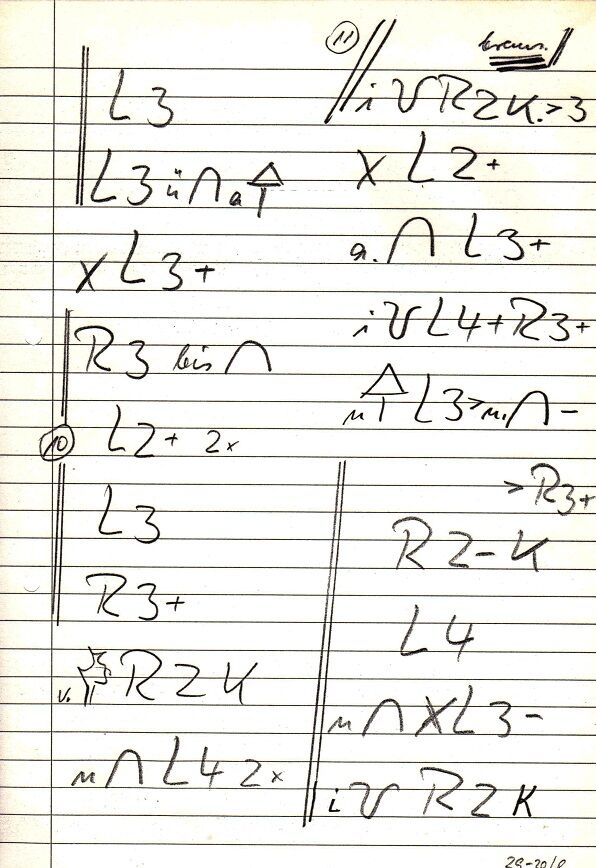 L3
L3 ü ∩ a
X L3+
R3 bis ∩
10 L2+ 2x
L3
R3+
v. R2 K
n ∩ L4 2x
11
i V R2 K. > 3
X L2+
a. ∩ L3+
i V L4+R3+
n L3 > n. ∩ -
> R3+
R2 - K
L4
n ∩ X L3 -
i V R2 K